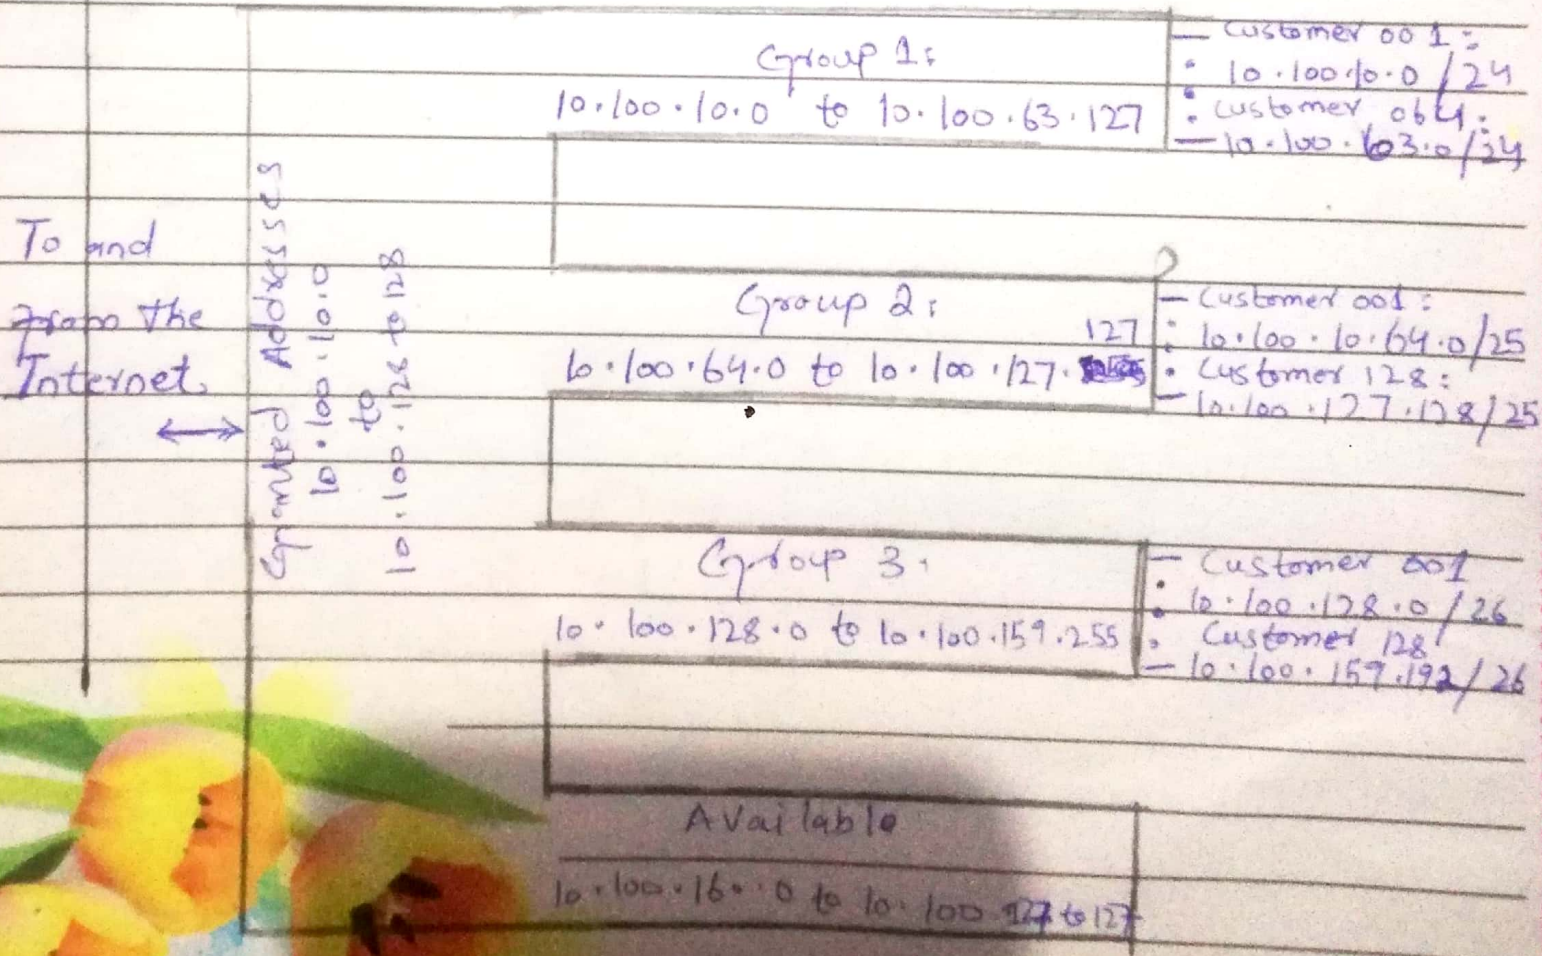 To and
from the
Internet
Granted Addresses
10.100.10.0
to
10.100.128 to 128
Group 1:
10.100.10.0 to 10.100.63.127
Customer 001:
10.100.10.0/24
Customer 064:
10.100.63.0/24
Group 2:
127
10.100.64.0 to 10.100.127.
Customer 001:
10.100.10.64.0/25
Customer 128:
10.100.127.128/25
Group 3:
10.100.128.0 to 10.100.159.255
Customer 001
10.100.128.0/26
Customer 128
10.100.159.192/26
Available
10.100.160.0 to 10.100 127 to 127